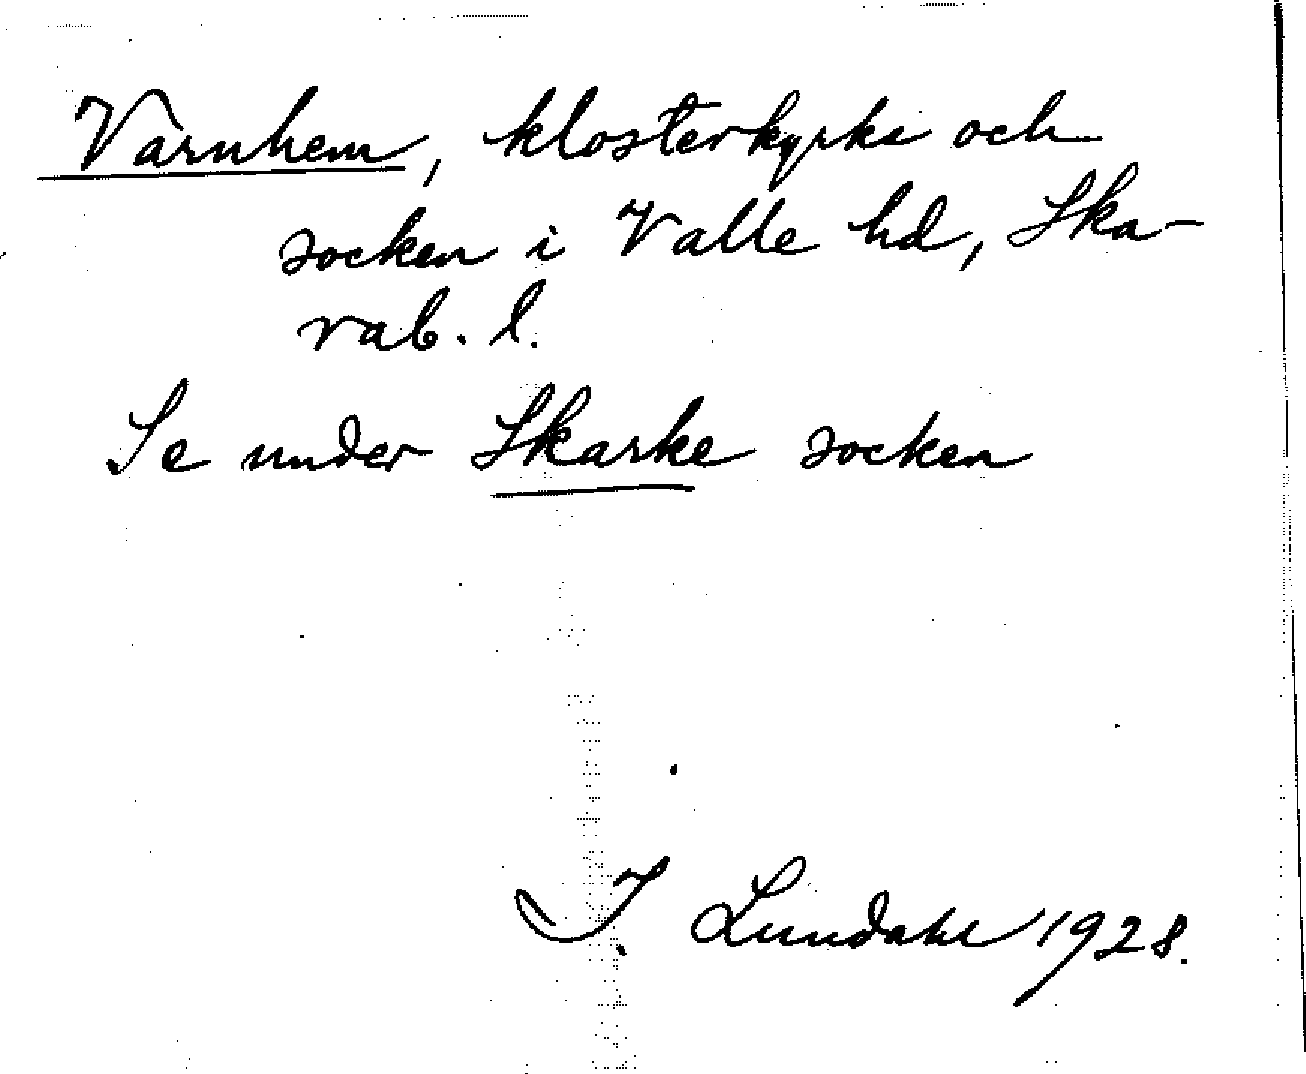 Varnhem, klosterkyrka och
socken i Valle hd, Ska-
rab. l.
Se under Skarke socken
I. Lundahl 1928.